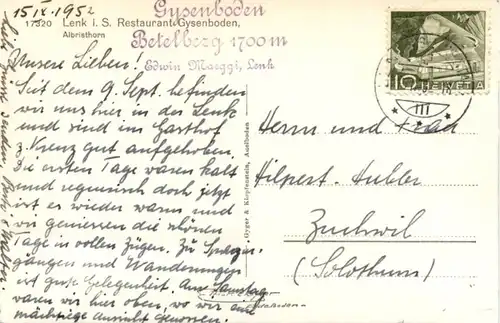 15. IX. 1952
17320 Lenk i. S. Restaurant Gysenboden,
Albristhorn
Gysenboden
Betelberg 1700 m
Edwin Maeggi, Lenk
Unsere Lieben!
Seit dem 9. Sept. befinden
wir uns hier in der Lenk
und sind im Gasthof
z. Kreuz gut aufgehoben.
Die ersten Tage waren kalt
und regnerisch doch jetzt
ist es wieder warm und
wir geniessen die schönen
Tage in vollen Zügen. Zu Spazier-
gängen und Wanderungen
ist gute Gelegenheit. Am Samstag
waren wir hier oben, wo wir eine
prächtige Aussicht genossen.
senden
Gyger & Klopfenstein, Adelboden
10 HELVETIA
III
Herrn und Frau
Hilpert-Hubler
Zuchwil
(Solothurn)